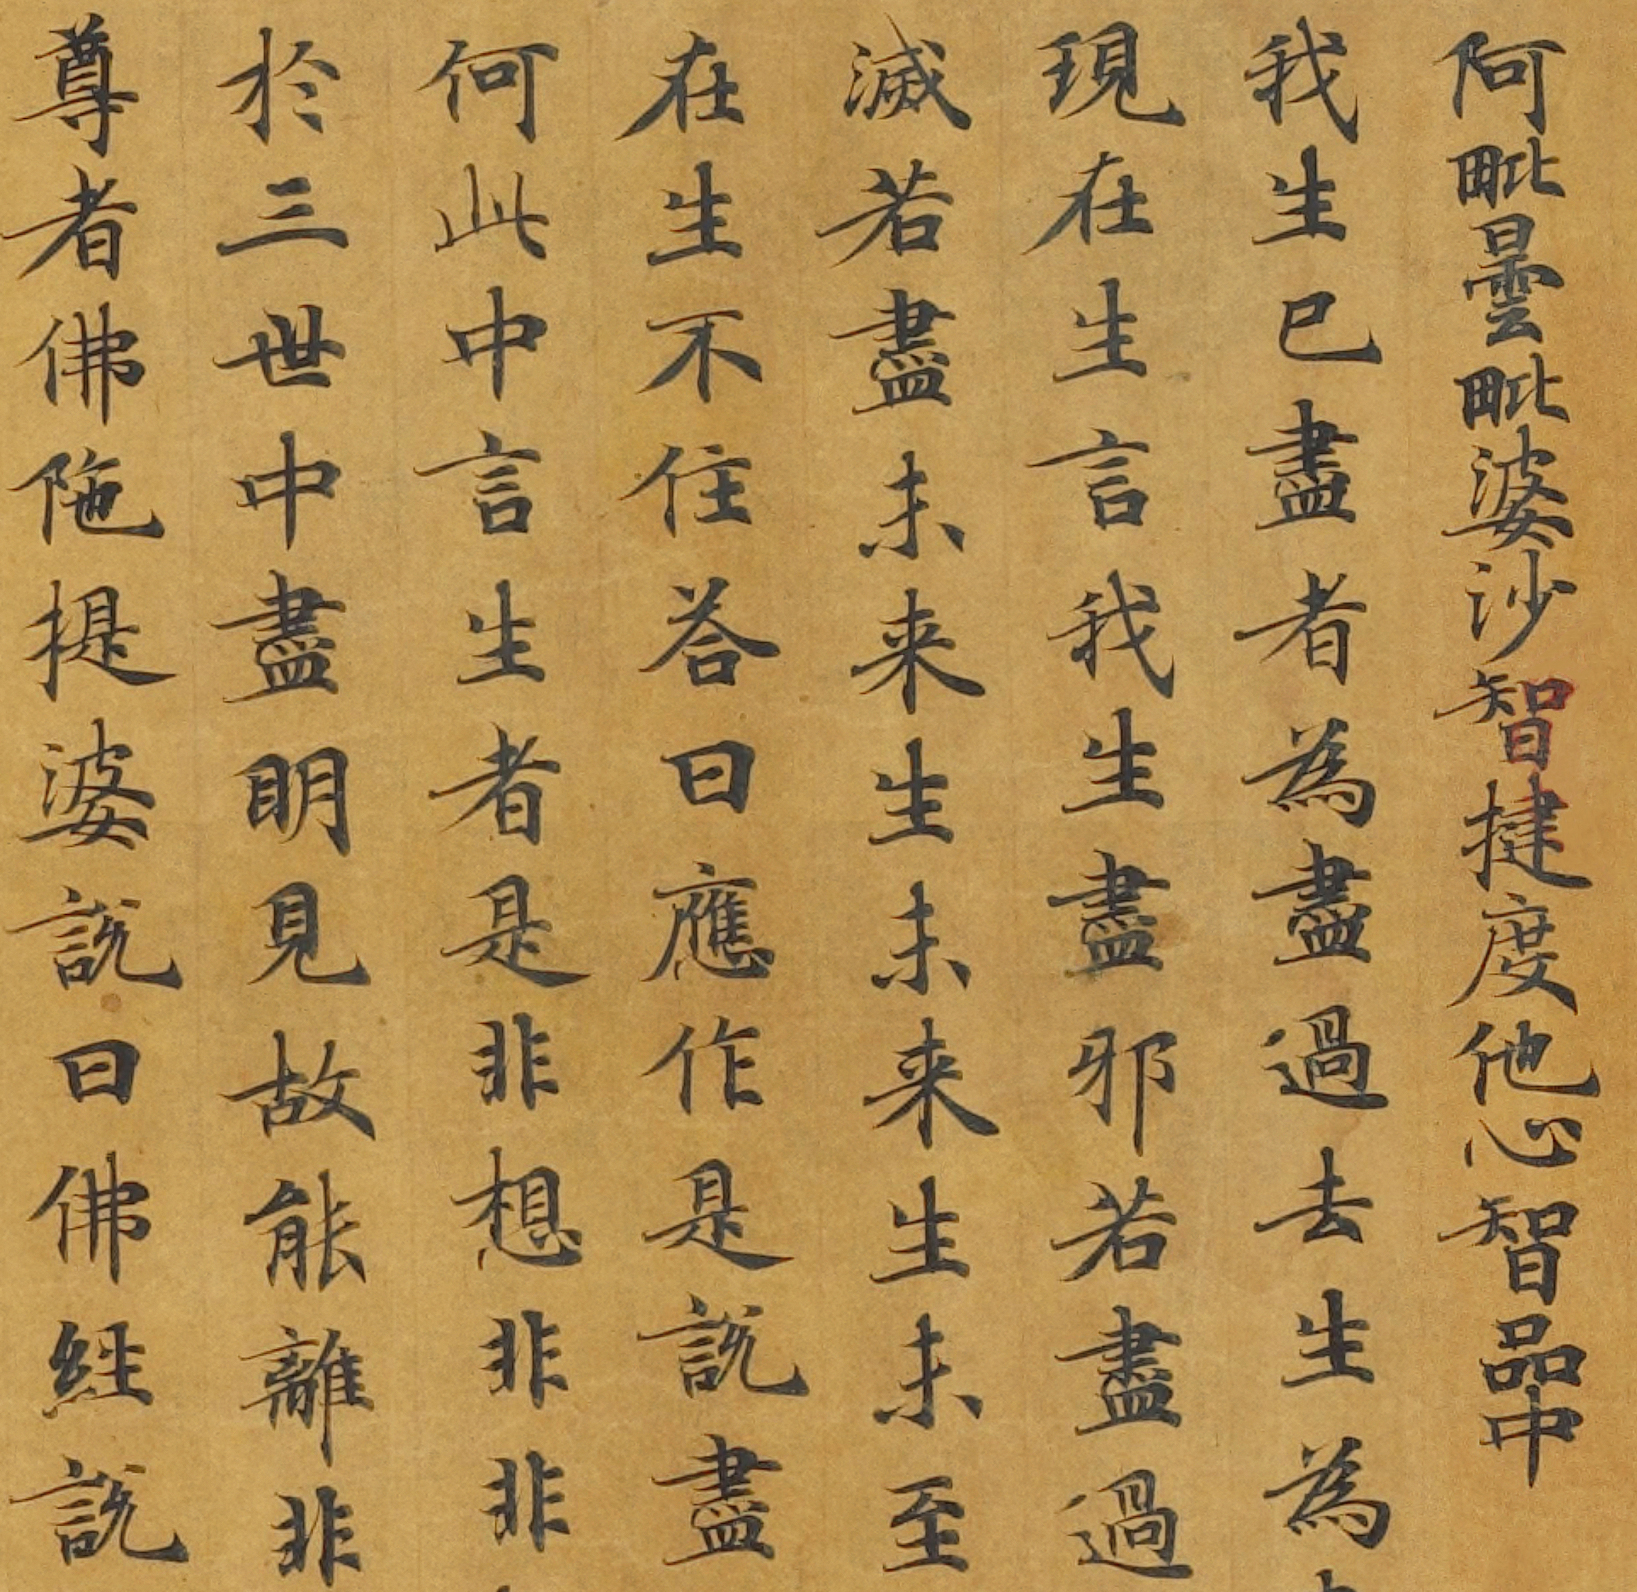 阿毗曇毗婆沙智揵度他心智品中
我生已盡者為盡過去生為
現在生言我生盡邪若盡過
滅若盡未来生未来生未至
在生不住荅曰應作是說盡
何此中言生者是非想非非
於三世中盡明見故能離非
尊者佛陁提婆說曰佛經說